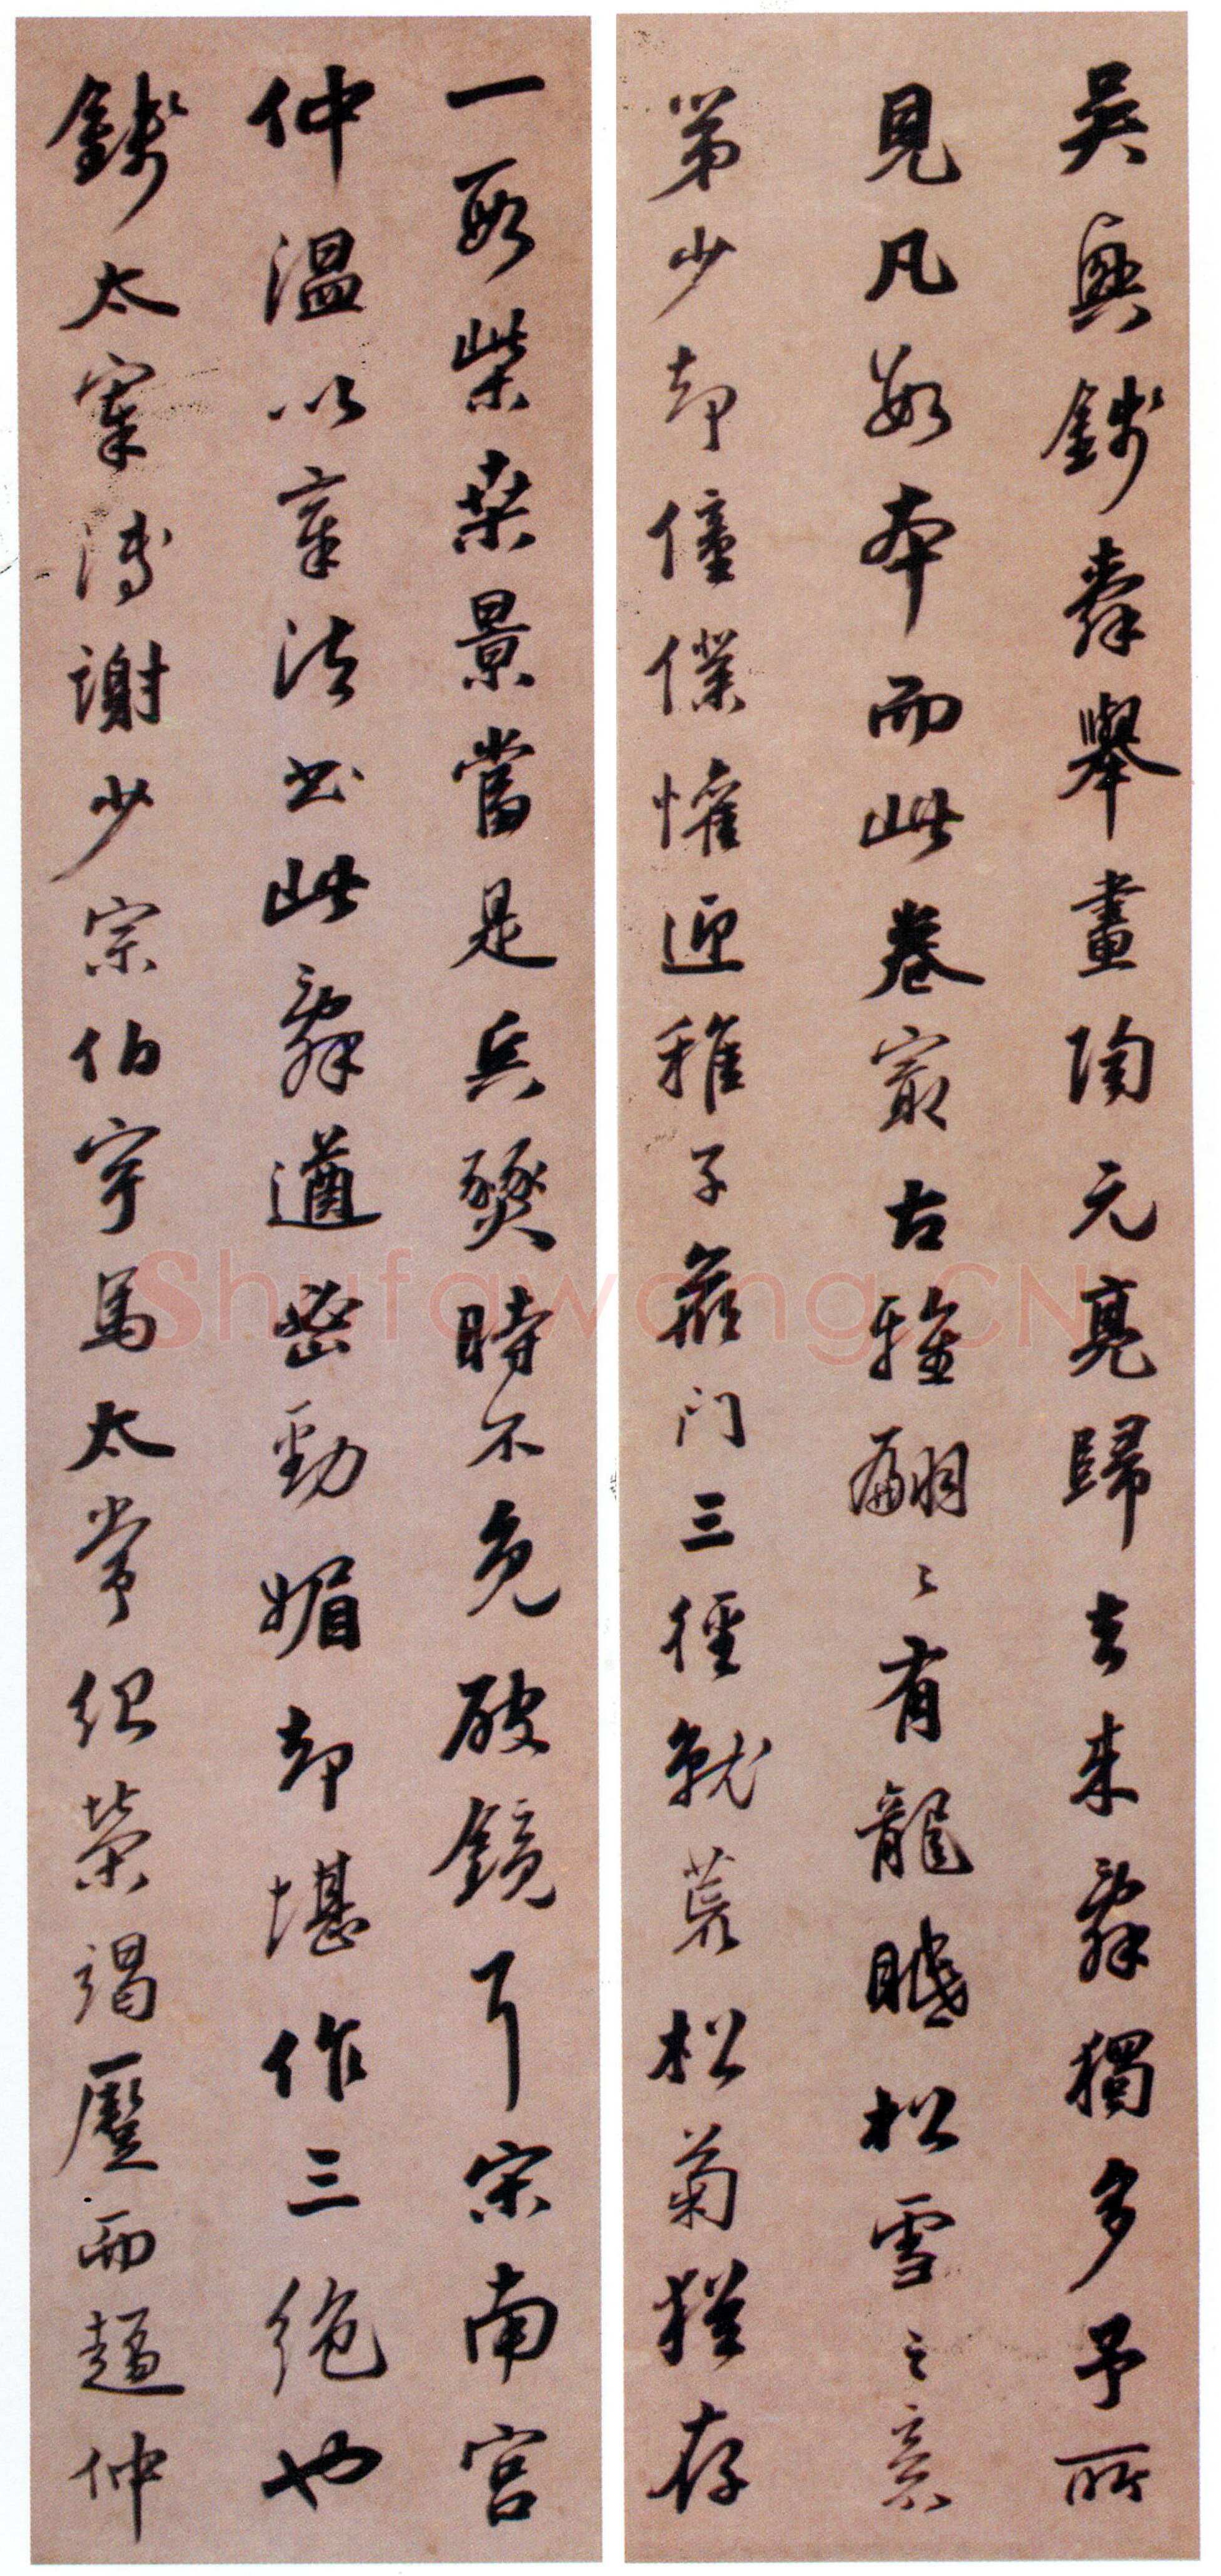 吳興錢舜舉畫陶元亮歸去來辭獨多予所
見凡數本而此卷最古雅翩〻有龍眠松雪之意
第少卻僮僕懽迎稚子候門三徑就荒松菊猶存
一段柴桑景當是兵燹時不免破鏡耳宋南宮
仲溫以章法書此辭遒密勁媚卻堪作三絕也
錢太宰溥謝少宗伯宇馬太常紹榮謁壓而趙仲
Shufawang.CN